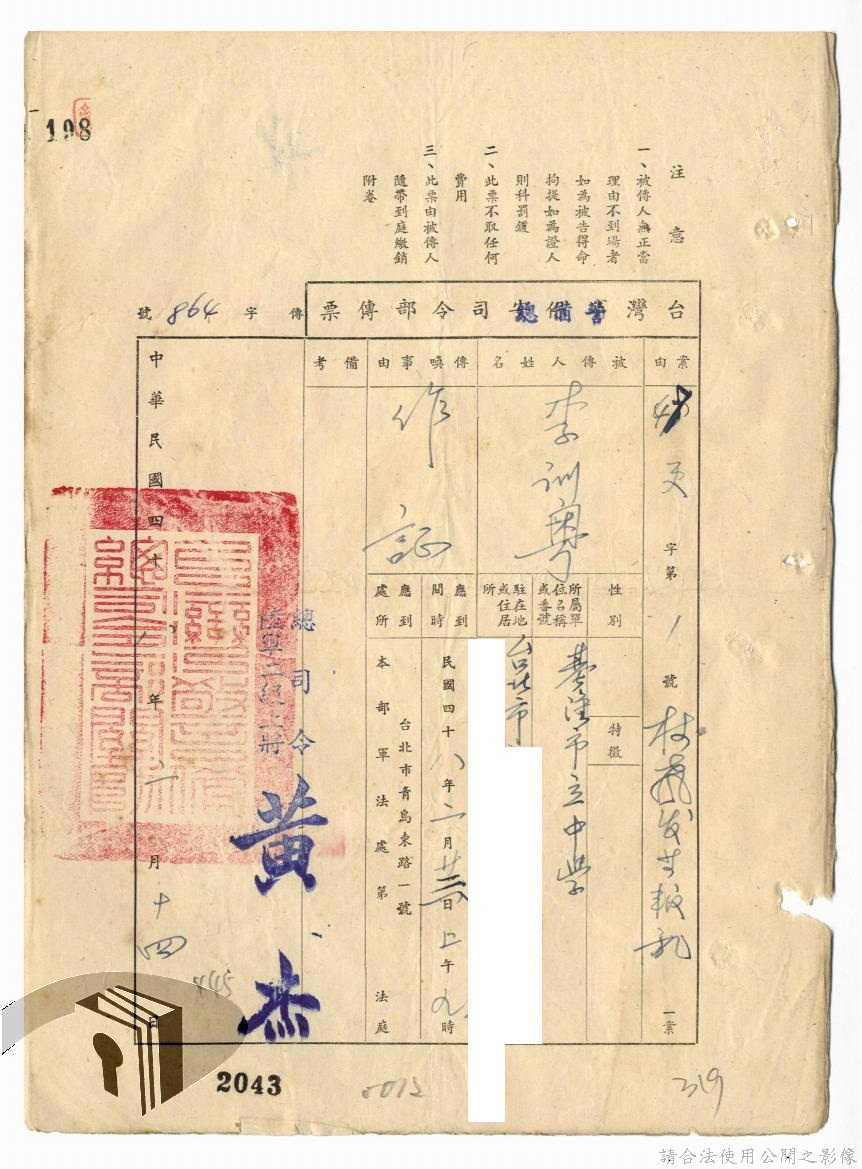 198
注意
一、被傳人無正當
理由不到場者
如為被告得命
拘提如為證人
則科罰鍰
二、此票不取任何
費用
三、此票由被傳人
隨帶到庭繳銷
附卷
台灣警備總司令部傳票
傳字 894 號
案由
更字第1號
叛亂
一案
被傳人姓名
李訓粵
性別
特徵
所屬單位名稱或番號
基隆市立中學
駐在地或住居所
台北市
傳喚事由
作証
應到時間
民國四十八年二月廿三日上午九時
應到處所
台北市青島東路一號
本部軍法處第 法庭
備考
總司令
陸軍二級上將
黃杰
中華民國四十八年二月十四日
445
2043
0012
319
請合法使用公開之影像